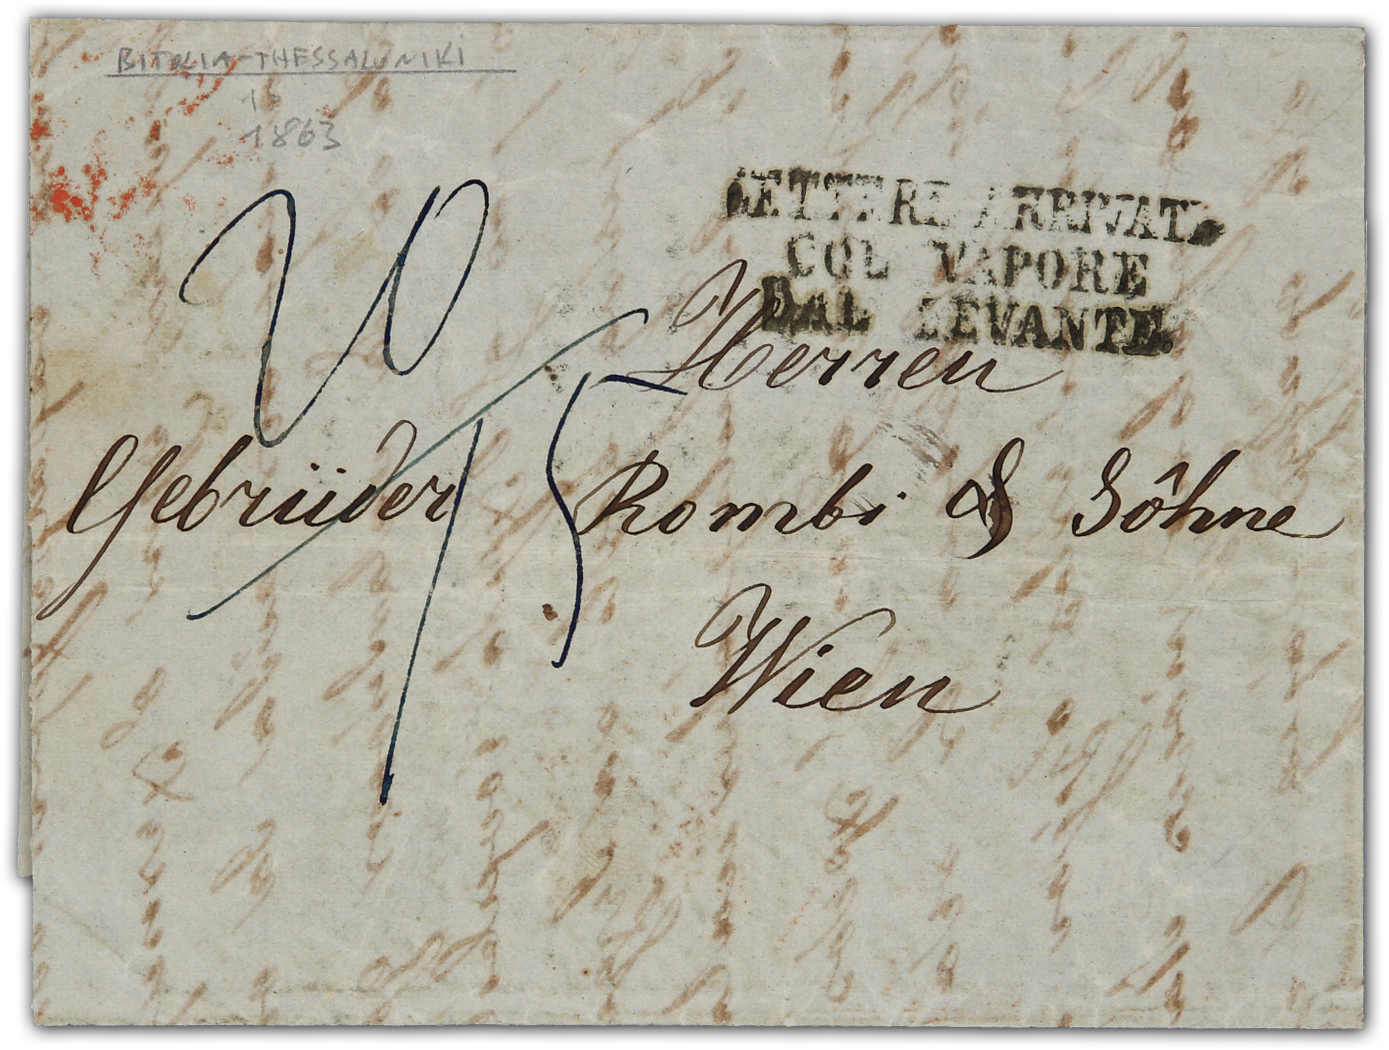 BITOLIA-THESSALONIKI
1863
LETTERE ARRIVATE
COL VAPORE
DAL LEVANTE.
20
15
Herren
Gebrüder Rombi & Söhne
Wien